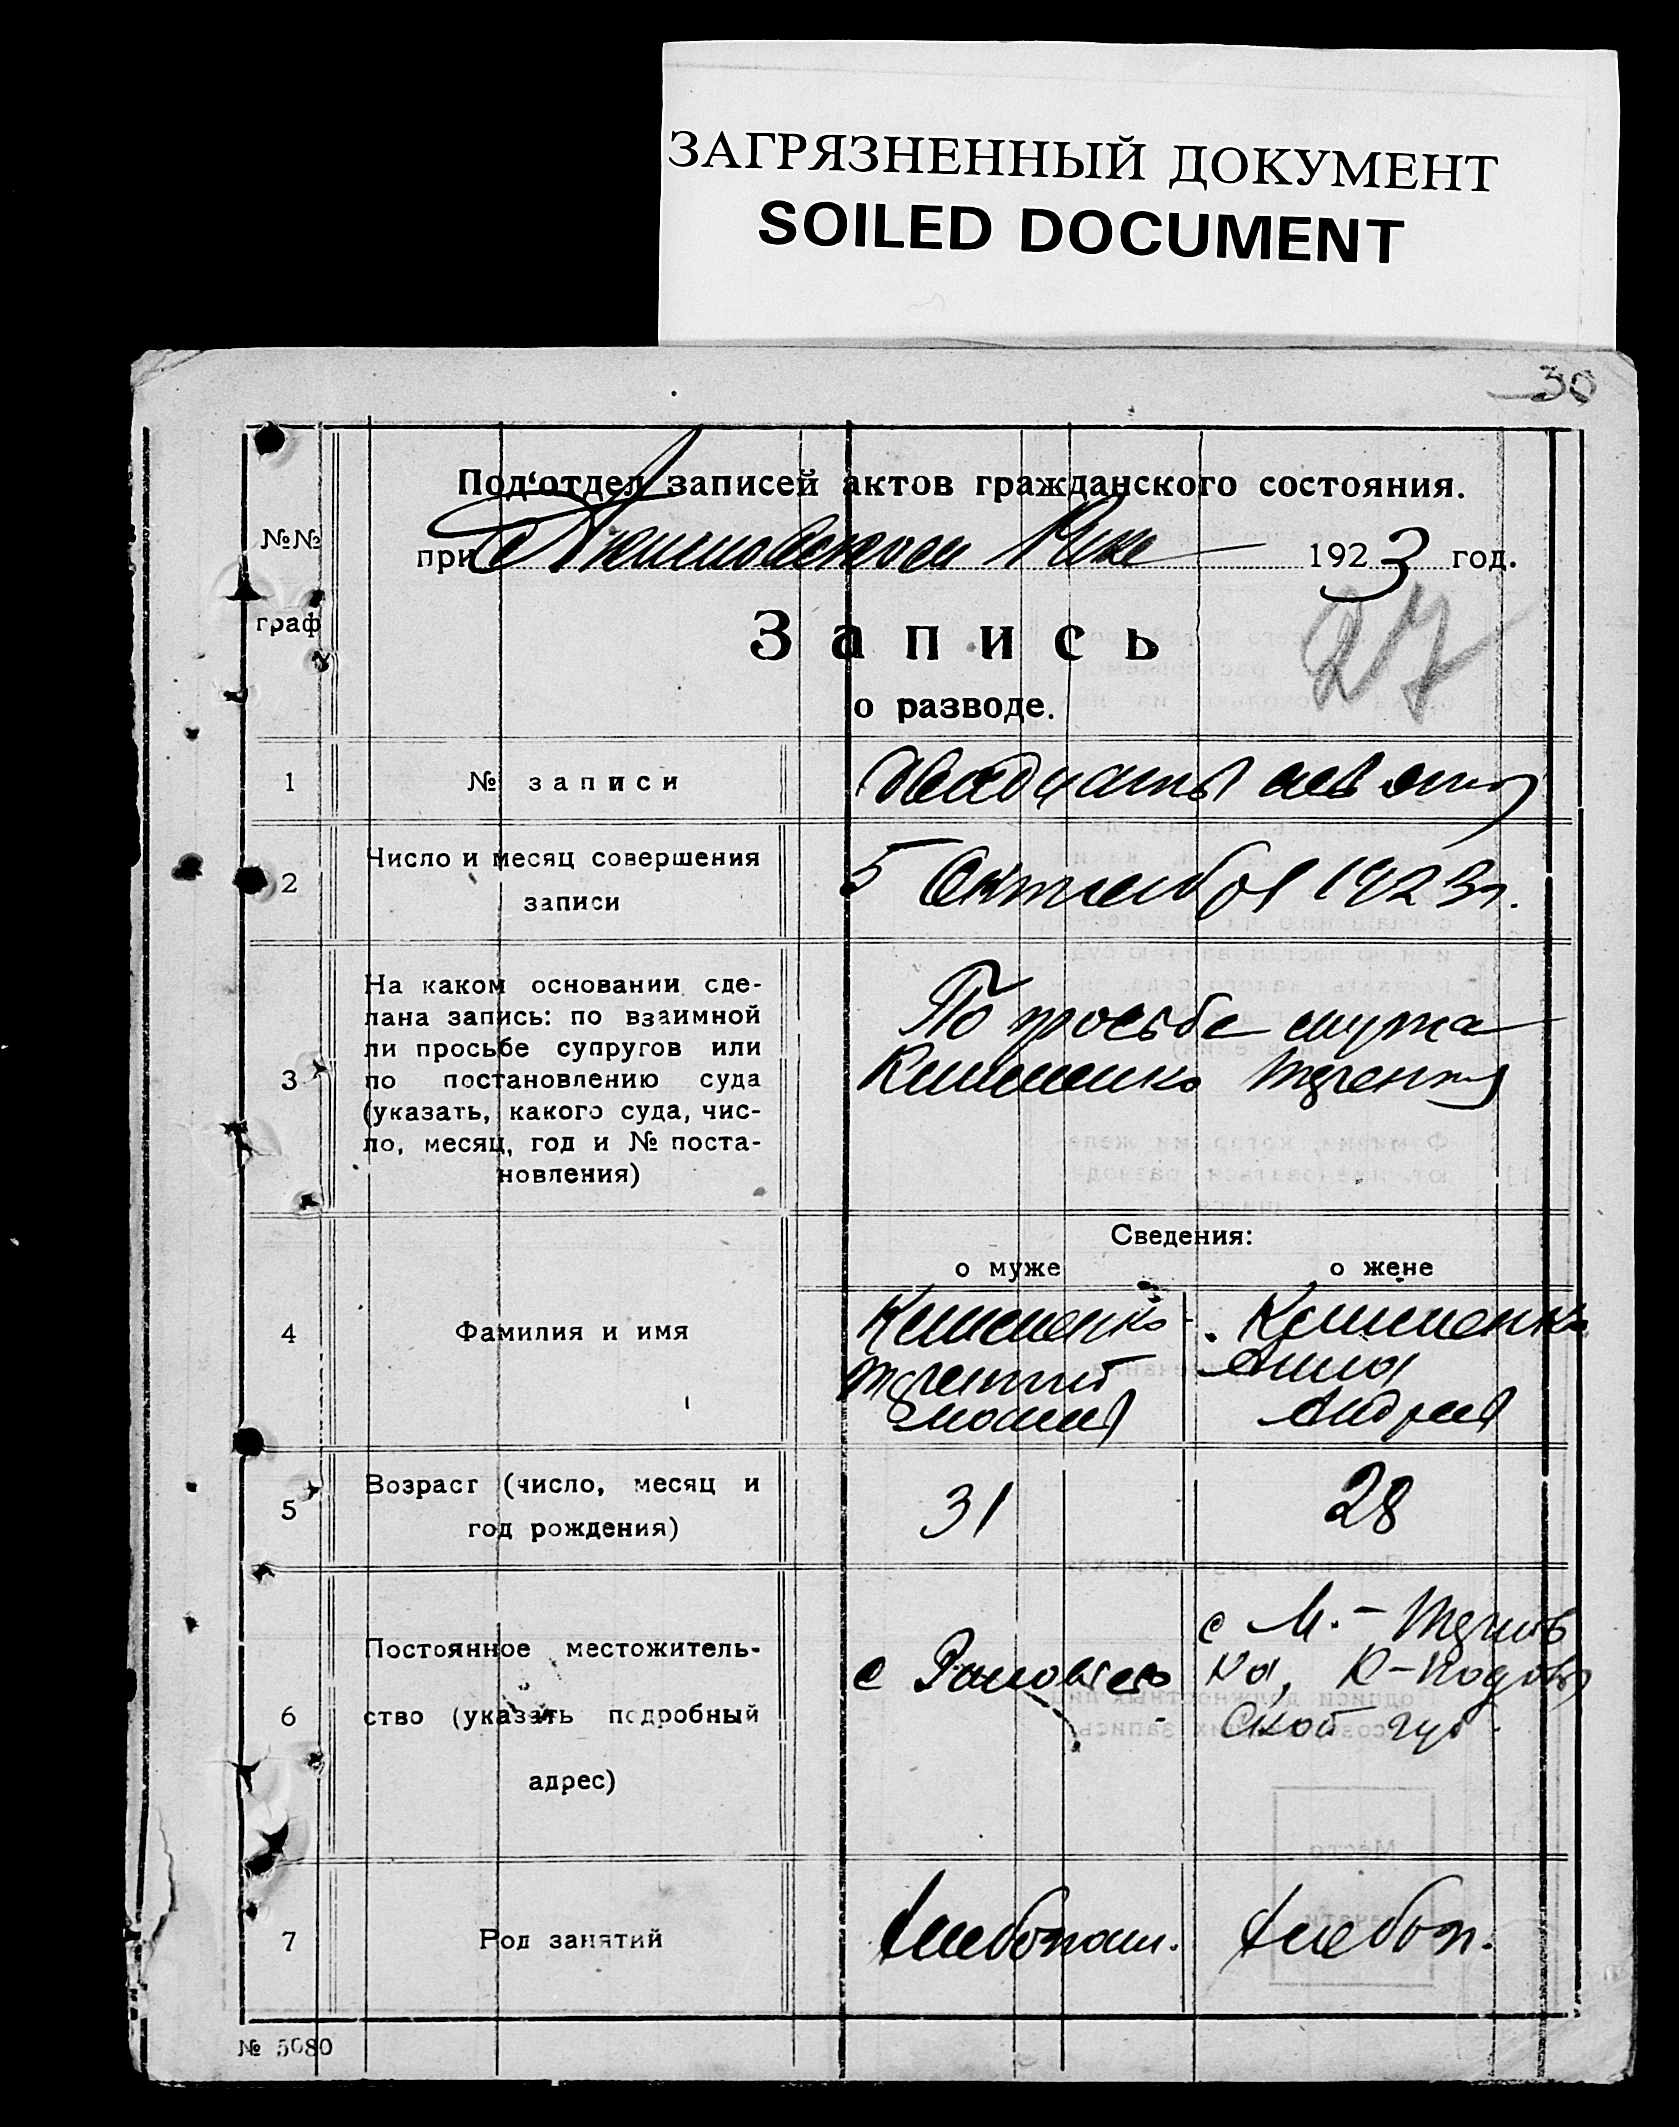 ЗАГРЯЗНЕННЫЙ ДОКУМЕНТ
SOILED DOCUMENT
30
Под‘отдел записей актов гражданского состояния.
№№
граф
при 1923 год.
Запись
27
о разводе.
1 № записи Двадцать
2 Число и месяц совершения
записи
5 Октября 1923 г.
3 На каком основании сде-
лана запись: по взаимной
ли просьбе супругов или
по постановлению суда
(указать, какого суда, чис-
ло, месяц, год и № поста-
новления)
По просьбе мужа
Клименко Терентия
Сведения:
о муже о жене
4 Фамилия и имя
Клименко Клименко
Терентий Анна
Андрея
5 Возраст (число, месяц и
год рождения)
31 28
6 Постоянное местожитель-
ство (указать подробный
адрес)
с
с М.-
ка,
ской губ.
7 Род занятий Хлебопаш. Хлебоп.
№ 5080